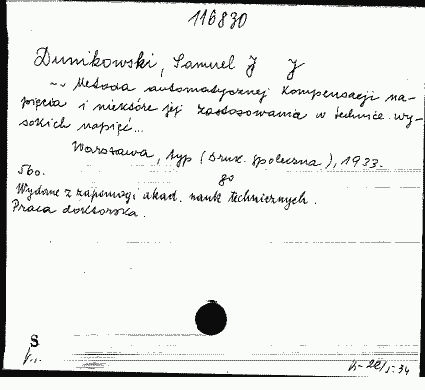 116830
Dunikowski, Samuel J J
~ Metoda automatycznej kompensacji na-
pięcia i niektóre jej zastosowania w technice wy-
sokich napięć...
Warszawa, typ (Druk. Społeczna), 1933.
8o
560.
Wydane z zapomogi akad. nauk technicznych.
Praca doktorska.
S
22/I.34